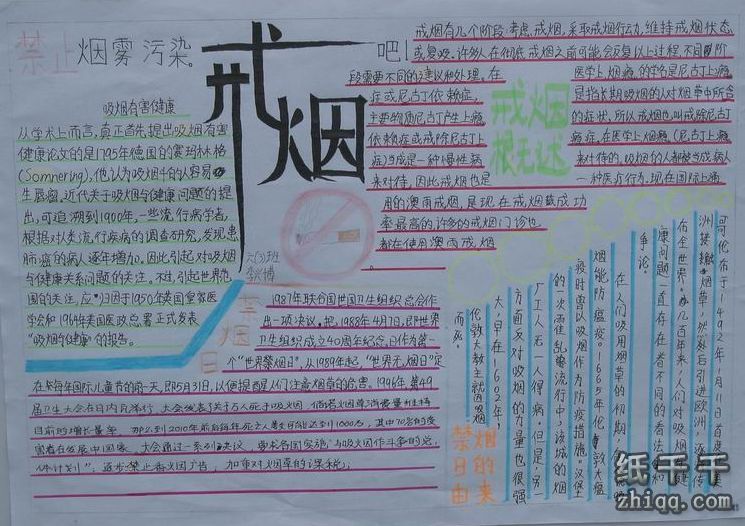 禁止烟雾污染。
戒烟
吧!
吸烟有害健康
从学术上而言,真正首先提出吸烟有害
健康论文的是1795年德国的赛玛林格
(Somnering),他认为吸烟斗的人容易
生唇癌,近代关于吸烟与健康问题的提
出,可追溯到1900年,一些流行病学者,
根据对人类流行疾病的调查研究,发现患
肺癌的病人逐年增加。因此引起对吸烟
与健康关系问题的关注。不过,引起世界范
围的关注,应归因于1950年英国皇家医
学会和1964年美国医政总署正式发表
"吸烟与健康"的报告。
戒烟有几个阶段,考虑戒烟,采取戒烟行动,维持戒烟状态
或复吸,许多人在彻底戒烟之前可能会反复以上过程,不同阶
段需要不同的建议和处理。在
医学上烟瘾的学名是尼古丁上瘾
症或尼古丁依赖症,
是指长期吸烟的人对烟草中所含
主要物质尼古丁产生上瘾
的症状,所以戒烟也叫戒除尼古丁
依赖症或戒除尼古丁上
瘾症。在医学上烟瘾(尼古丁上瘾
症)当成是一种慢性病
来对待,吸烟的人都被当成病人
来对待,因此戒烟也是
一种医疗行为,现在国际上通
用的澳雨戒烟,是现在戒烟最成功
率最高的,许多的戒烟门诊也
都在使用澳雨戒烟
戒烟
根无达
六(3)班
禁烟日
1987年联合国世国卫生组织总会作
出一项决议,把1988年4月7日,即世界
卫生组织成立40周年纪念日作为第
一个"世界禁烟日",从1989年起,"世界无烟日"定
在每年国际儿童节的前一天,即5月31日,以便提高人们注意烟草的危害。1996年第49
届卫生大会在日内瓦举行
目前的增长量率
那么到2020年前后每年死亡人数更可能达到1000万,其中70%的受
害者在发展中国家。大会通过一系列决议,要求各国实施"与吸烟作斗争的总
体计划",逐步禁止香烟广告,加重对烟草的课税;
禁烟日的由来
哥伦布于1492年11月1日首次
洲接触烟草,然后引进欧洲,逐渐传
布全世界,几百年来,人们对吸烟与健
康问题一直存在着不同的看法和
争论。
在人们吸用烟草的初期,
烟能防瘟疫。1665年伦敦大瘟
疫时曾以吸烟作为防疫措施,汉堡
的一次霍乱流行中,该城的烟
厂工人无一人得病。但是,另一
方面反对吸烟的力量也很强
大,早在1602年,
伦敦大教主就因吸烟
而死。
纸千千
zhiqq.com